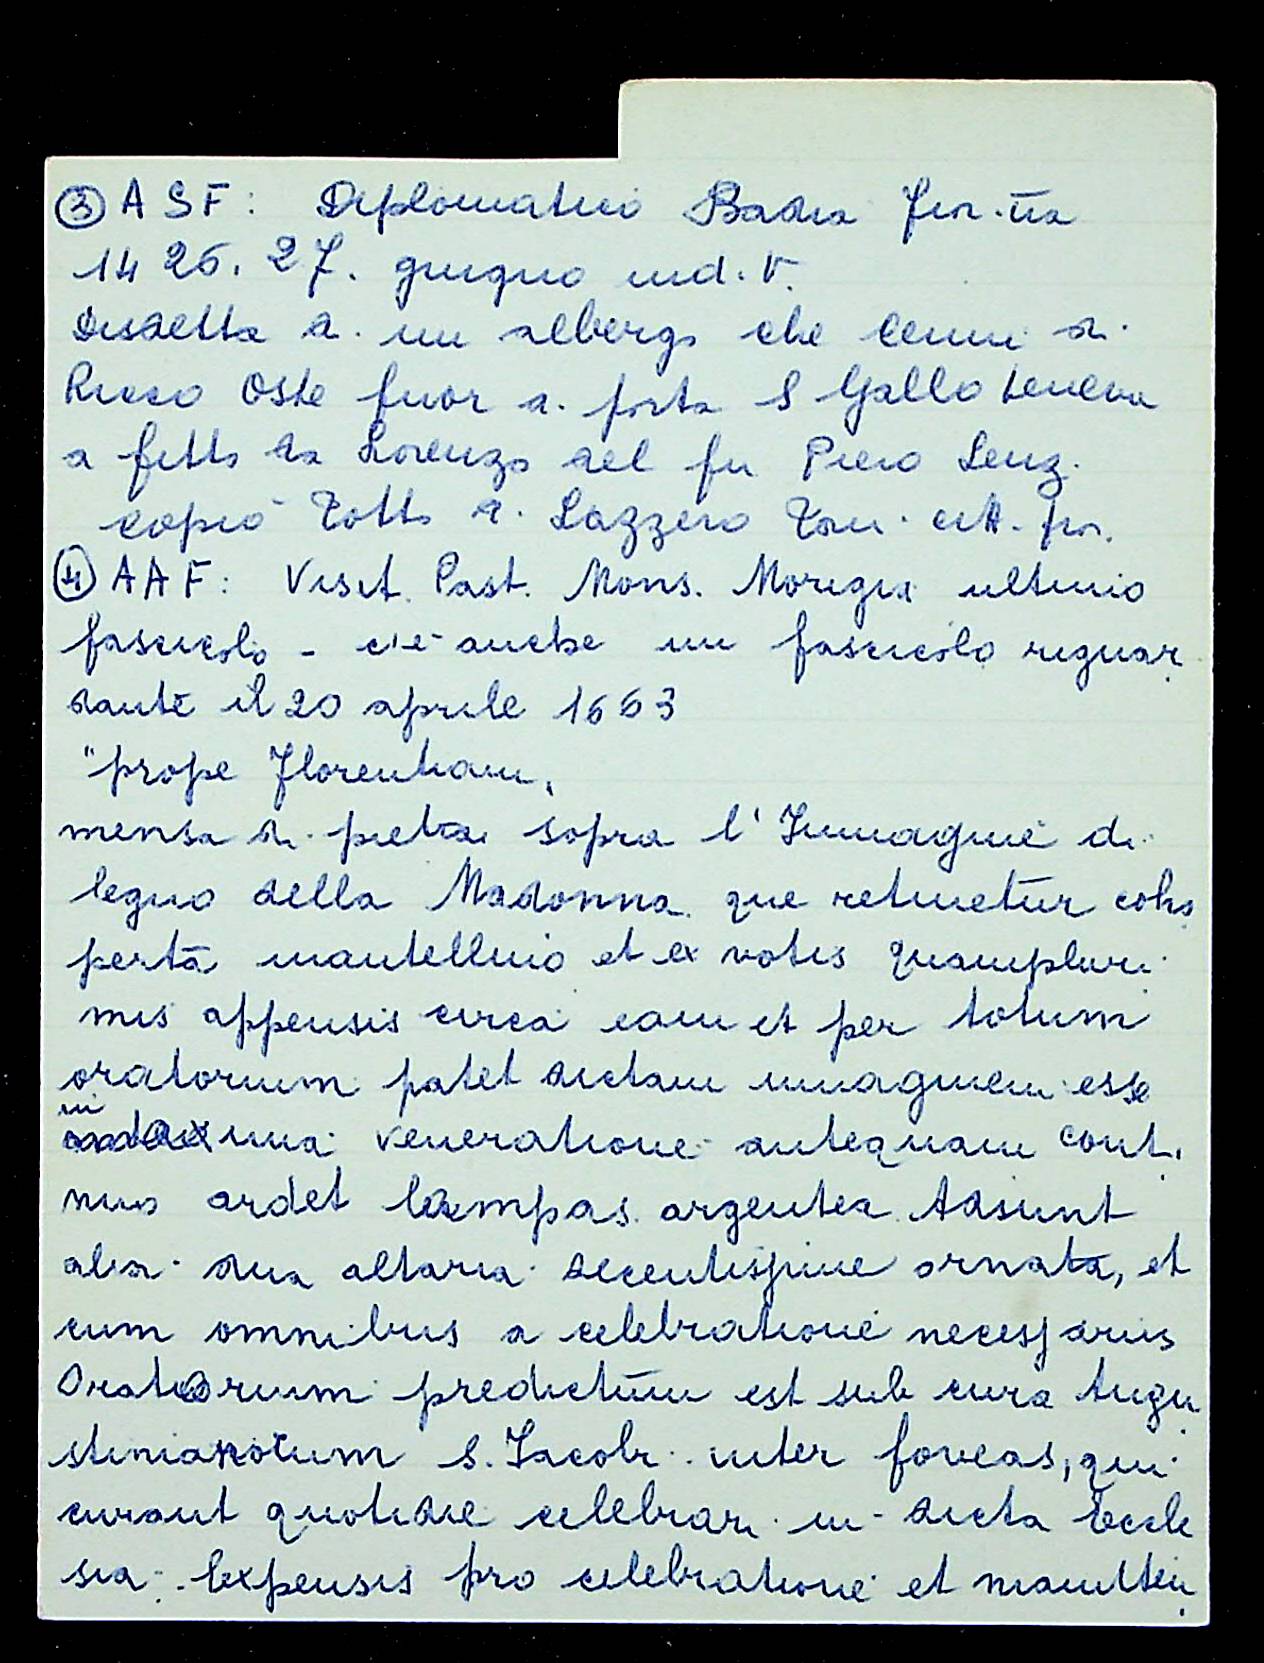 ③ ASF: Diplomatico Badia fior.na
1426. 27. giugno ind. V.
Disdetta di un albergo che Cenni di
Ricco Oste fuor di porta S Gallo teneva
a fitto da Lorenzo del fu Piero Lenz.
copiò Totto di Lazzero citt. fior.
④ AAF: Visit. Past. Mons. Morigia ultimo
fascicolo - c'è anche un fascicolo riguar
dante il 20 aprile 1663
"prope Florentiam,
mensa di pietra sopra l'Immagine di
legno della Madonna que retinetur coho
perta mantellino et ex votis quampluri
mis appensis circa eam et per totum
oratorium patet dictam imaginem esse
in maxima veneratione antequam conti
nuo ardet lampas argentea. Adsunt
alia dua altaria decentissime ornata, et
cum omnibus a celebratione necessariis
Oratorium predictum est sub cura Augu
stinianorum S. Jacobi inter foveas, qui
curant quotidie celebrari in dicta Eccle
sia. Expensis pro celebratione et manuten